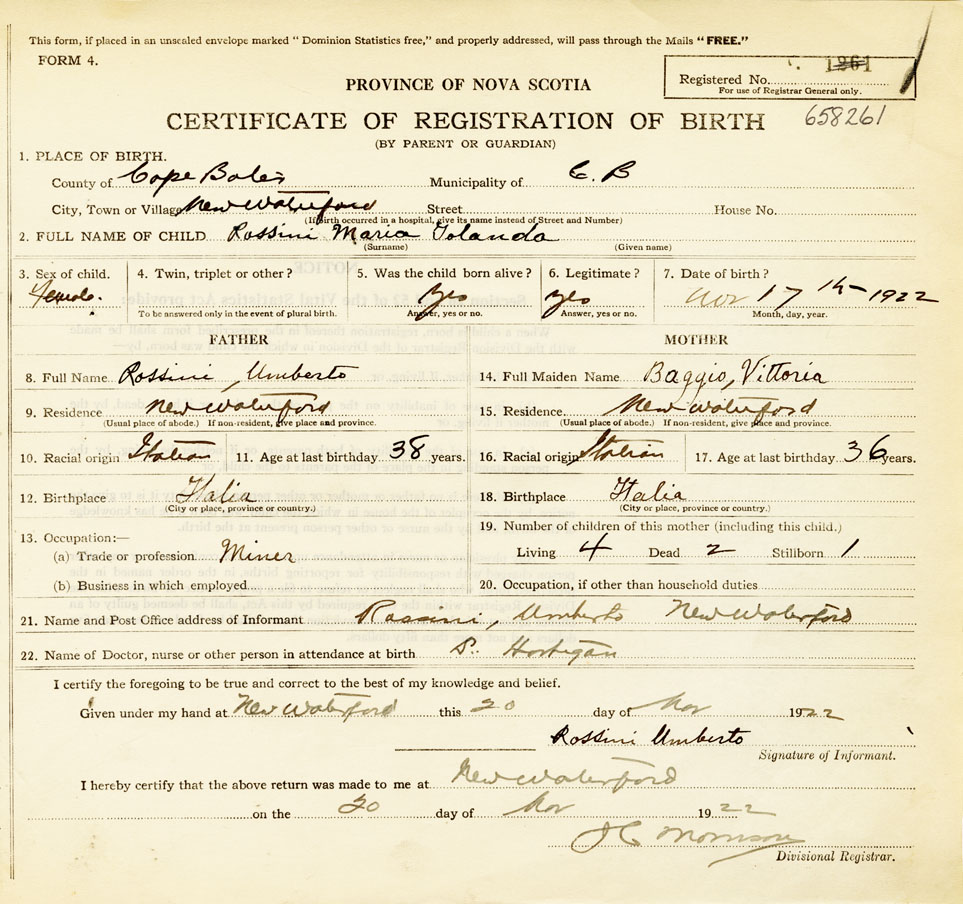 This form, if placed in an unsealed envelope marked "Dominion Statistics free," and properly addressed, will pass through the Mails "FREE."
FORM 4.
1261
Registered No.
For use of Registrar General only.
PROVINCE OF NOVA SCOTIA
658261
CERTIFICATE OF REGISTRATION OF BIRTH
(BY PARENT OR GUARDIAN)
1. PLACE OF BIRTH.
County of Cape Municipality of C. B
City, Town or Village New Waterford Street House No.
(If birth occurred in a hospital, give its name instead of Street and Number)
2. FULL NAME OF CHILD Rossini Maria Iolanda
(Surname) (Given name)
3. Sex of child. 4. Twin, triplet or other? 5. Was the child born alive? 6. Legitimate? 7. Date of birth?
Female. yes yes Nov 17th 1922
To be answered only in the event of plural birth. Answer, yes or no. Answer, yes or no. Month, day, year.
FATHER MOTHER
8. Full Name Rossini, Umberto 14. Full Maiden Name Baggio, Vittoria
9. Residence New Waterford 15. Residence. New Waterford
(Usual place of abode.) If non-resident, give place and province. (Usual place of abode.) If non-resident, give place and province.
10. Racial origin Italian 11. Age at last birthday 38 years. 16. Racial origin Italian 17. Age at last birthday 36 years.
12. Birthplace Italia 18. Birthplace Italia
(City or place, province or country.) (City or place, province or country.)
13. Occupation:— 19. Number of children of this mother (including this child.)
(a) Trade or profession Miner Living 4 Dead 2 Stillborn 1
(b) Business in which employed 20. Occupation, if other than household duties
21. Name and Post Office address of Informant Rossini, Umberto New Waterford
22. Name of Doctor, nurse or other person in attendance at birth
I certify the foregoing to be true and correct to the best of my knowledge and belief.
Given under my hand at New Waterford this 20 day of Nov 1922
Rossini Umberto
Signature of Informant.
I hereby certify that the above return was made to me at New Waterford
on the 20 day of Nov 1922
J C Morrison
Divisional Registrar.